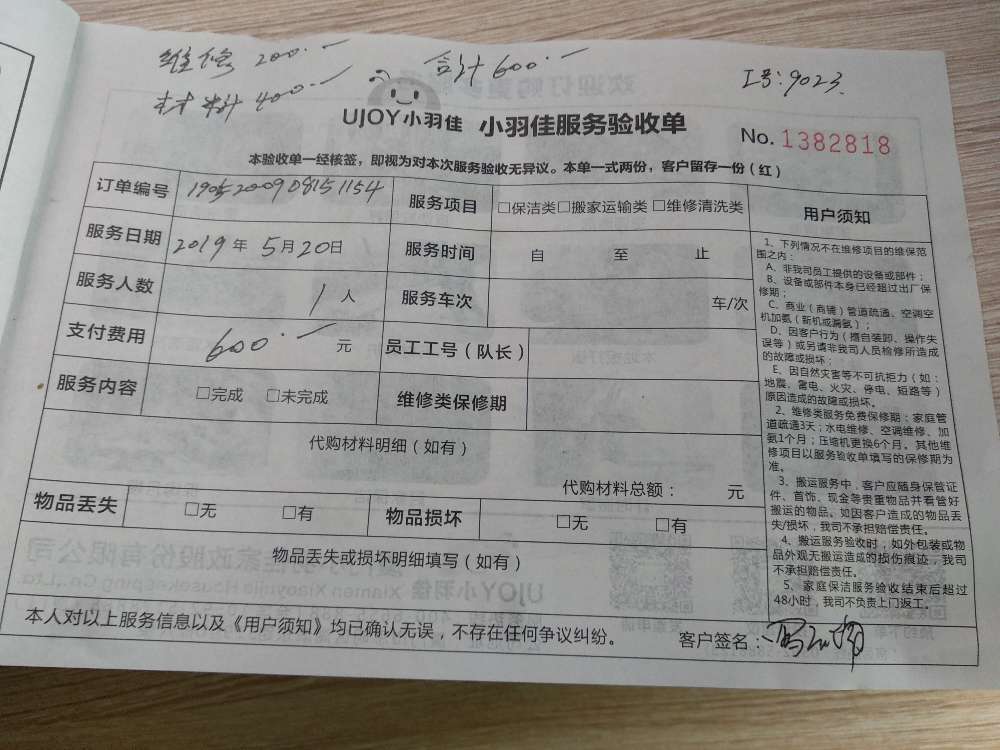 维修 200.
合计 600.
工号:9023.
材料 400.
UJOY小羽佳 小羽佳服务验收单
No. 1382818
本验收单一经核签，即视为对本次服务验收无异议。本单一式两份，客户留存一份（红）
订单编号 1905200908151154 服务项目 □保洁类□搬家运输类 □维修清洗类
服务日期 2019 年 5 月 20 日 服务时间 自 至 止
服务人数 1 人 服务车次 车/次
支付费用 600. 元 员工工号（队长）
服务内容 □完成 □未完成 维修类保修期
代购材料明细（如有）
代购材料总额： 元
物品丢失 □无 □有 物品损坏 □无 □有
物品丢失或损坏明细填写（如有）
本人对以上服务信息以及《用户须知》均已确认无误，不存在任何争议纠纷。 客户签名：
用户须知
1、下列情况不在维修项目的维保范
围之内：
A、非我司员工提供的设备或部件；
B、设备或部件本身已经超过出厂保
修期；
C、商业（商铺）管道疏通、空调空
机加氨（新机或漏氨）；
D、因客户行为（擅自装卸、操作失
误等）或另请非我司人员检修所造成
的故障或损坏；
E、因自然灾害等不可抗拒力（如：
地震、雷电、火灾、停电、短路等）
原因造成的故障或损坏。
2、维修类服务免费保修期：家庭管
道疏通3天；水电维修、空调维修、加
氨1个月；压缩机更换6个月。其他维
修项目以服务验收单填写的保修期为
准。
3、搬运服务中，客户应随身保管证
件、首饰、现金等贵重物品并看管好
搬运的物品。如因客户造成的物品丢
失/损坏，我司不承担赔偿责任。
4、搬运服务验收时，如外包装或物
品外观无搬运造成的损伤痕迹，我司
不承担赔偿责任。
5、家庭保洁服务验收结束后超过
48小时，我司不负责上门返工。